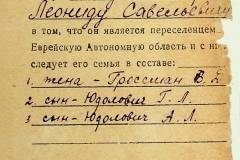 Леониду Савельевичу
в том, что он является переселенцем
Еврейскую Автономную область и с ни
следует его семья в составе:
1. жена - Гроссман В. Б
2. сын - Юдолович Г. Л.
3. сын - Юдолович А. Л.